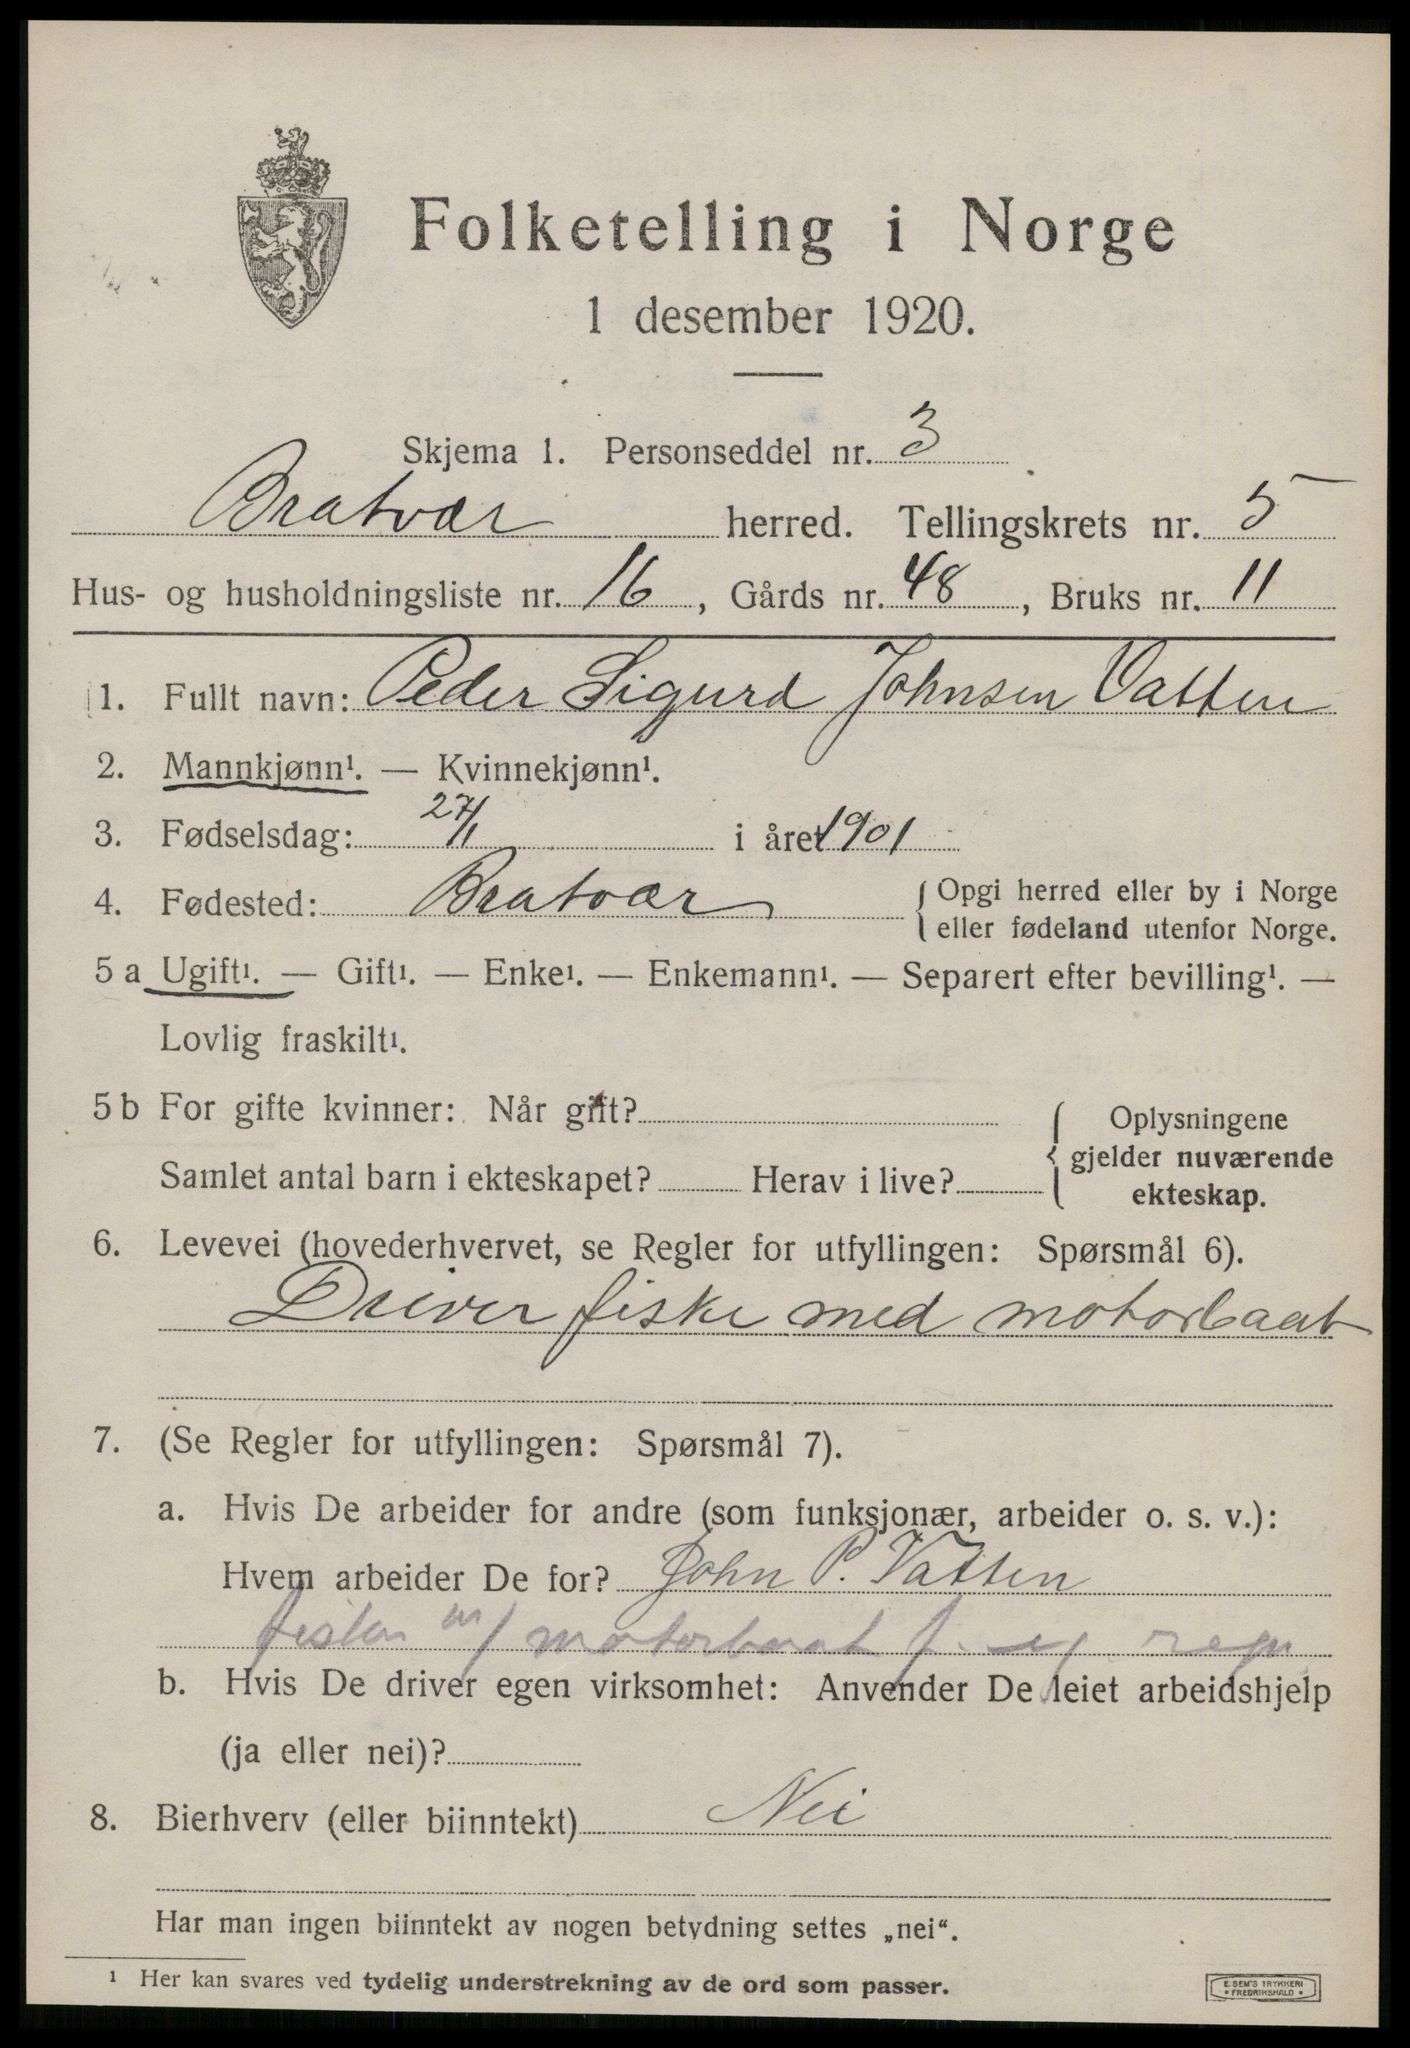 Folketelling i Norge
1 desember 1920.
Skjema 1. Personseddel nr. 3
Bratvær herred. Tellingskrets nr. 5
Hus- og husholdningsliste nr. 16, Gårds nr. 48, Bruks nr. 11
1. Fullt navn: Peder Sigurd Johnsen Vatten
2. Mannkjønn¹. — Kvinnekjønn¹.
3. Fødselsdag: 27/1 i året 1901
4. Fødested: Bratvær { Opgi herred eller by i Norge
eller fødeland utenfor Norge.
5 a Ugift¹. — Gift¹. — Enke¹. — Enkemann¹. — Separert efter bevilling¹. —
Lovlig fraskilt¹.
5 b For gifte kvinner: Når gift?
Samlet antal barn i ekteskapet? Herav i live?
Oplysningene
gjelder nuværende
ekteskap.
6. Levevei (hovederhvervet, se Regler for utfyllingen: Spørsmål 6).
Driver fiske med motorbaat
7. (Se Regler for utfyllingen: Spørsmål 7).
a. Hvis De arbeider for andre (som funksjonær, arbeider o. s. v.):
Hvem arbeider De for? John P. Vatten
m/ motorbaat f. eg. regn.
b. Hvis De driver egen virksomhet: Anvender De leiet arbeidshjelp
(ja eller nei)?
8. Bierhverv (eller biinntekt) Nei
Har man ingen biinntekt av nogen betydning settes „nei“.
¹ Her kan svares ved tydelig understrekning av de ord som passer.
E. SEM'S TRYKKERI
• FREDRIKSHALD •